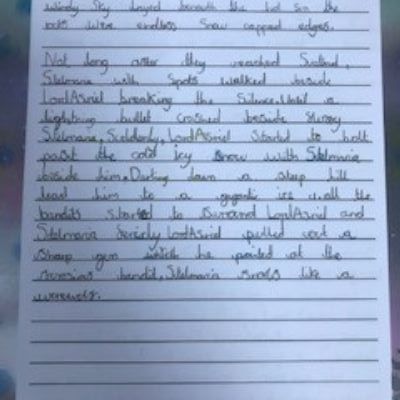 windy sky layed beneath the hot sun the
rocks were endless snow capped edges.
Not long after they reached Svalbard,
Stelmaria with spots walked beside
LordAsriel breaking the silence. Until a
lightning bullet crossed beside
Stelmaria, Suddenly, LordAsriel started to bolt
past the cold icy snow with Stelmaria
beside him. Darting down a steep hill
lead him to a gigantic ice all the
bandits started to Suround LordAsriel and
Stelmaria LordAsriel pulled out a
sharp gun which he pointed at the
bandit, Stelmaria snarls like a
werewolf.